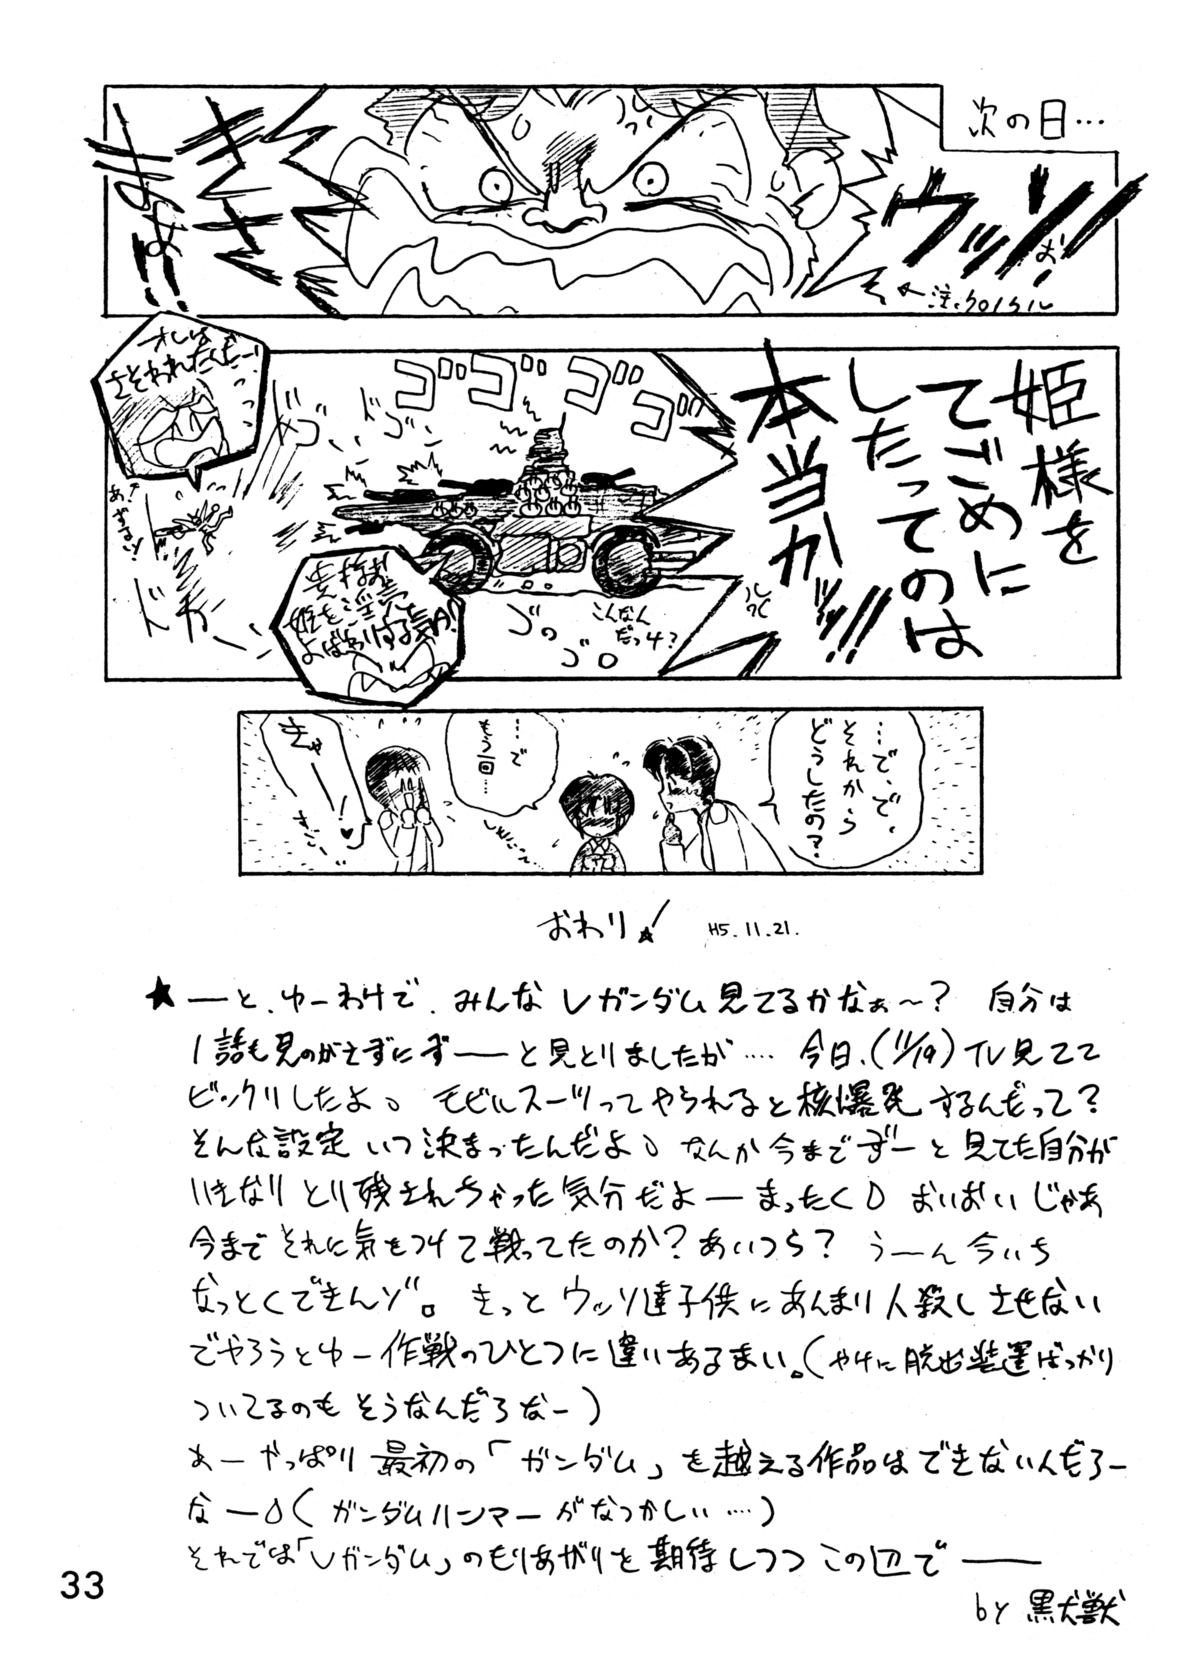 次の日…
ウッソ
お!
きさ
まぁ!!
注.クロノクル
姫様を
てごめに
したってのは
本当かッ!!
ゴゴゴゴ
オレは
さそわれたんだー!
ドゴ
ドゴ
ドカ
姫を淫乱
よばわりする気か!
ゴゴゴ
こんなん
だっけ?
…で、で、
それから
どうしたの?
…で
もう一回…
きゃー!♥
おわり!
H5.11.21.
★ーと、ゆーわけで、みんなVガンダム見てるかなぁ〜? 自分は
1話も見のがさずにずーーと見とりましたが…. 今日、(11/19) TV見てて
ビックリしたよ。 モビルスーツってやられると核爆発するんだって?
そんな設定いつ決まったんだよ。なんか今までずーと見てた自分が
いきなりとり残されちゃった気分だよーまったく。 おいおいじゃあ
今までそれに気をつけて戦ってたのか?あいつら? うーん今いち
なっとくできんゾ。 きっとウッソ達子供にあんまり人殺しさせない
でやろうとゆー作戦のひとつに違いあるまい。(やけに脱出装置ばっかり
ついてるのもそうなんだろなー)
あーやっぱり最初の「ガンダム」を越える作品はできないんだろー
なー。(ガンダムハンマーがなつかしい….)
それでは「Vガンダム」のもりあがりを期待しつつこの辺でーー
by 黒犬獣
33